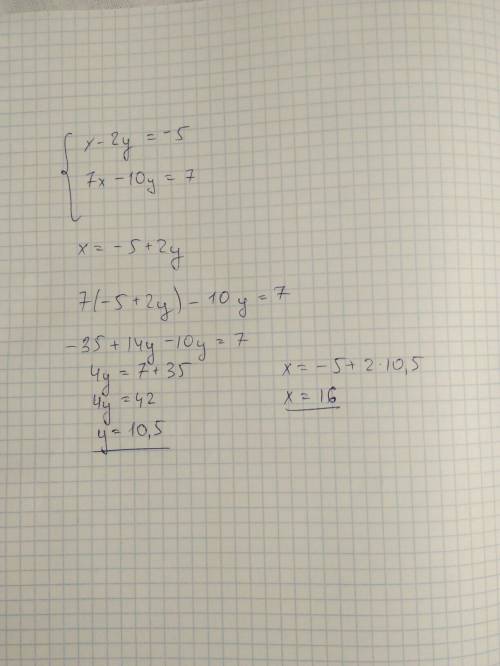 x - 2y = -5
7x - 10y = 7
x = -5 + 2y
7(-5 + 2y) - 10y = 7
-35 + 14y - 10y = 7
4y = 7 + 35
4y = 42
y = 10,5
x = -5 + 2·10,5
x = 16